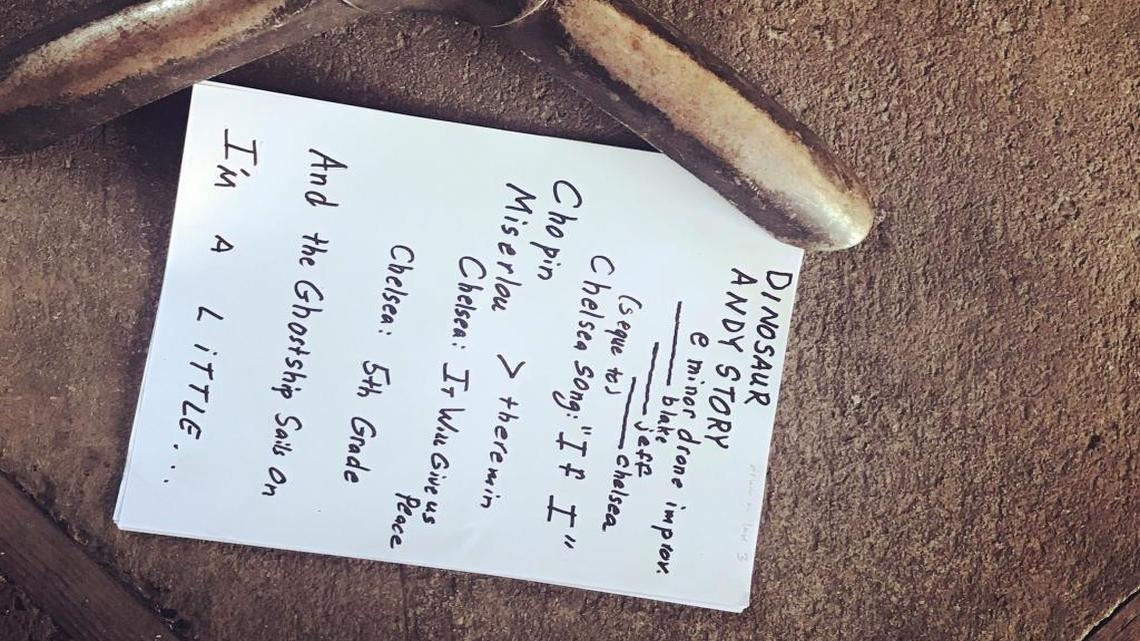 DINOSAUR
ANDY STORY
e minor drone improv.
blake
jeff
(segue to) chelsea
Chelsea Song: "If I"
Chopin
Miserlou > theremin
Chelsea: It Will Give us
Peace
Chelsea: 5th Grade
And the Ghostship Sails On
I'M A LiTTLE...